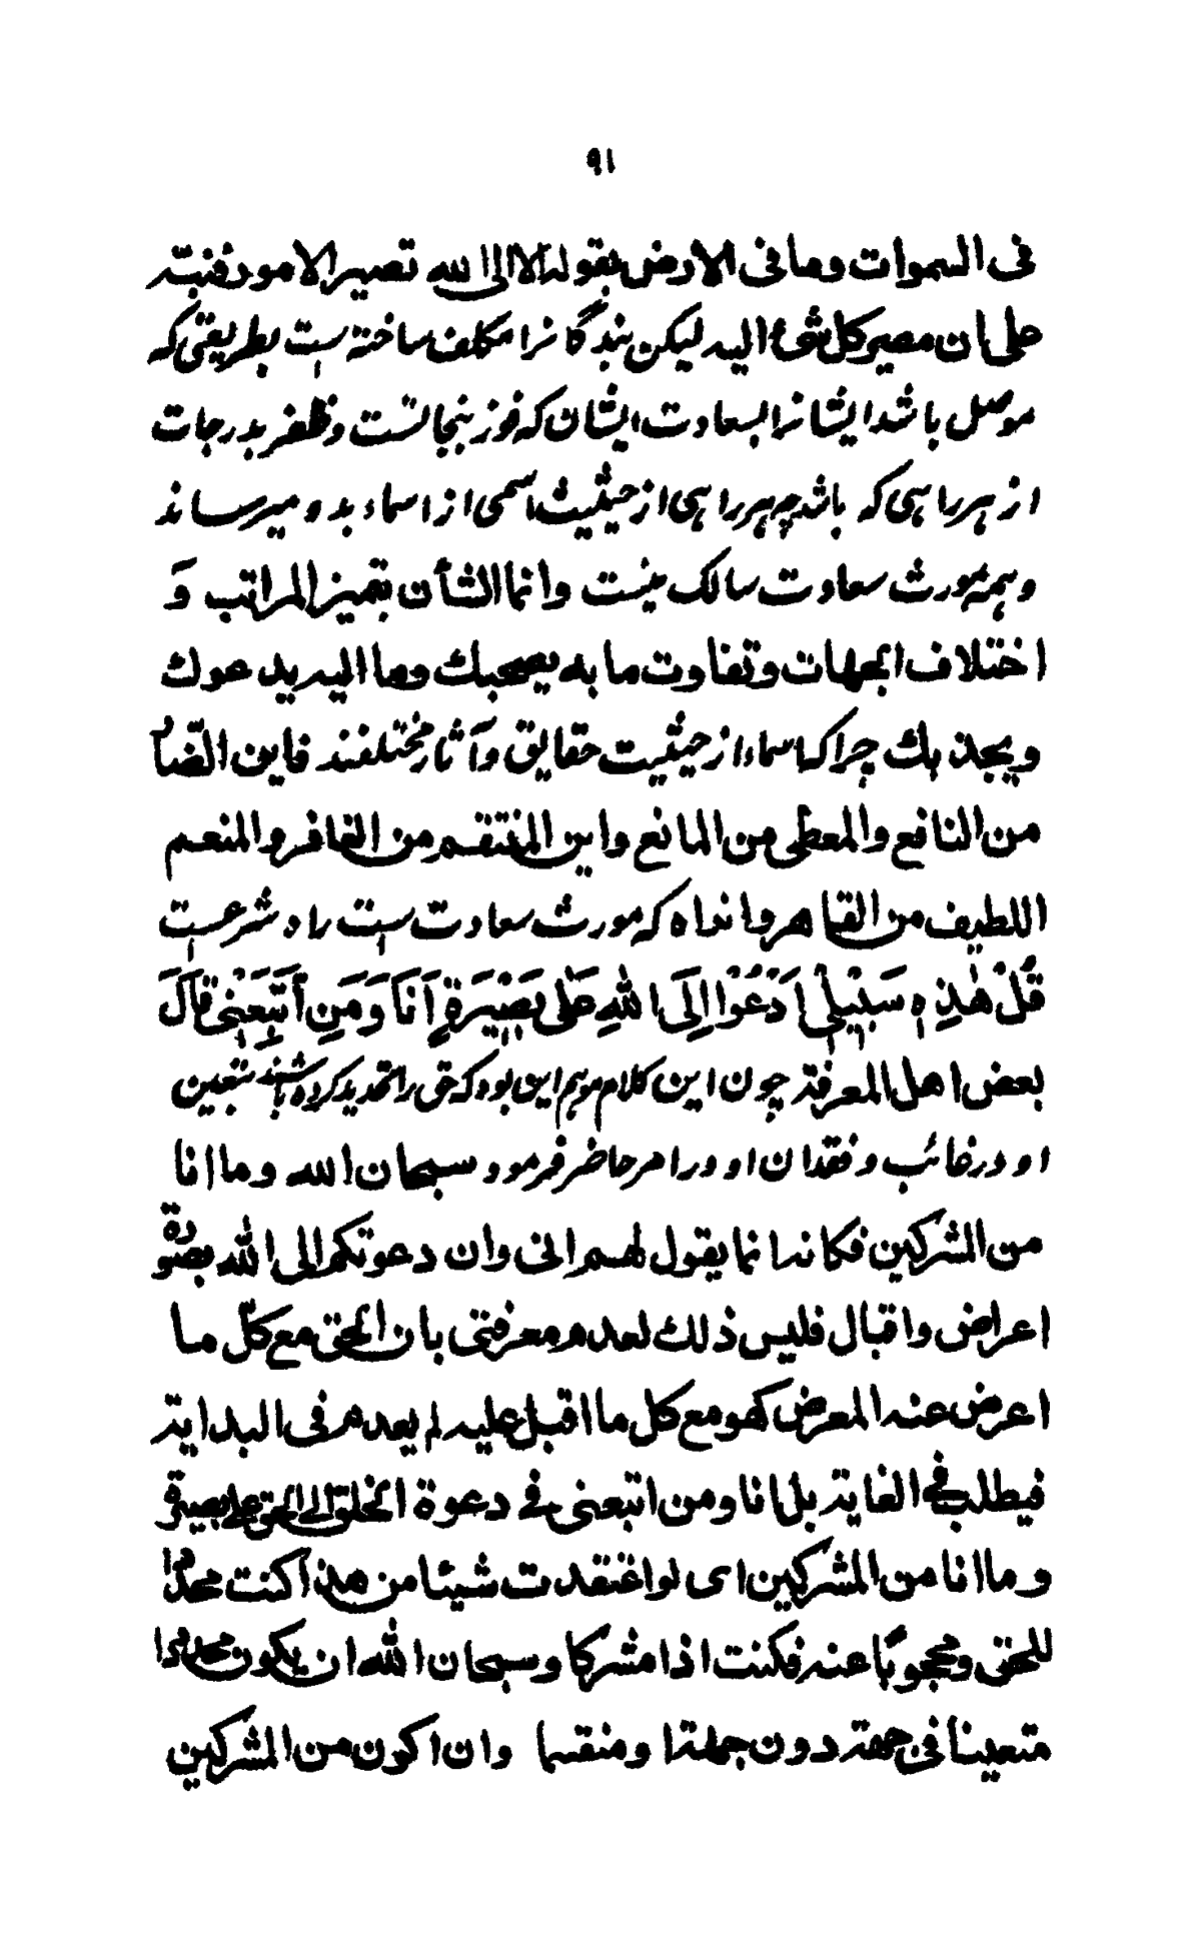 ۹۱
فی السموات وما فی الارض بقوله الا الی الله تصیر الامور فنبه
علی ان مصیر کل شیٔ الیه لیکن بندگانرا مکلف ساخته است بطریقی که
موصل باشد ایشانرا بسعادت ایشان که فوز بنجاتست و ظفر بدرجات
از هر راهی که باشد چه هر راهی از حیثیت اسمی از اسماء بدو میرساند
و همه مورث سعادت سالک نیست وانما الشأن بتمیز المراتب وَ
اختلاف الجهات وتفاوت ما به یصحبك وما الیه یدعوك
ویجذبك چرا که اسماء از حیثیت حقایق و آثار مختلفند فاین الضّار
من النافع والمعطی من المانع واین المنتقم من الغافر والمنعم
اللطیف من القاهر واندا ه که مورث سعادت ست راه شرعست
قُلْ هٰذِهِ سَبِیْلِیْ اَدْعُوْا اِلَی اللهِ عَلٰی بَصِیْرَةٍ اَنَا وَمَنِ اتَّبَعَنِی قَالَ
بعض اهل المعرفة چون این کلام موهم این بود که حق را تحدید کرده باشند بتعین
او در غائب و فقدان او در امر حاضر فرمود سبحان الله وما انا
من المشرکین فکانه انما یقول لهم انی وان دعوتکم الی الله بصورة
اعراض واقبال فلیس ذلك لعدم معرفتی بان الحق مع کلّ ما
اعرض عنه المعرض کهو مع کل ما اقبل علیه لم یعدم فی البدایة
فیطلب فی الغایة بل انا ومن اتبعنی فی دعوة الخلق الی الحق علی بصیرة
وما انا من المشرکین ای لو اعتقدت شیئا من هذا کنت محددا
للحق ومحجوبًا عنه فکنت اذا مشرکا وسبحان الله ان یکون محدودا
متعینا فی جهة دون جهة او منقسما وان اکون من المشرکین